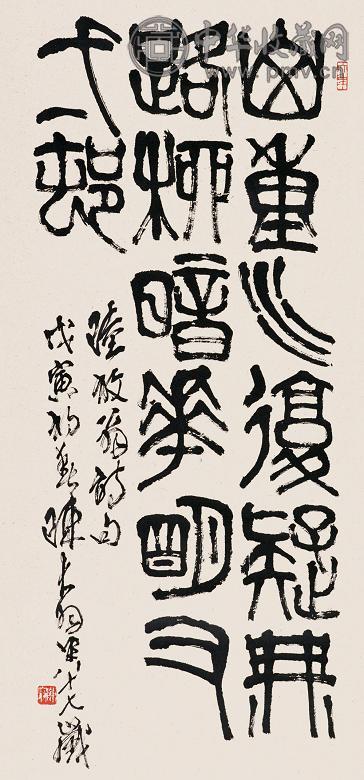 中华收藏网
www.pmv.cn
山重水復疑無
路柳暗花明又
弌邨
陸放翁詩句
戊寅初春陳大羽年八十七歲